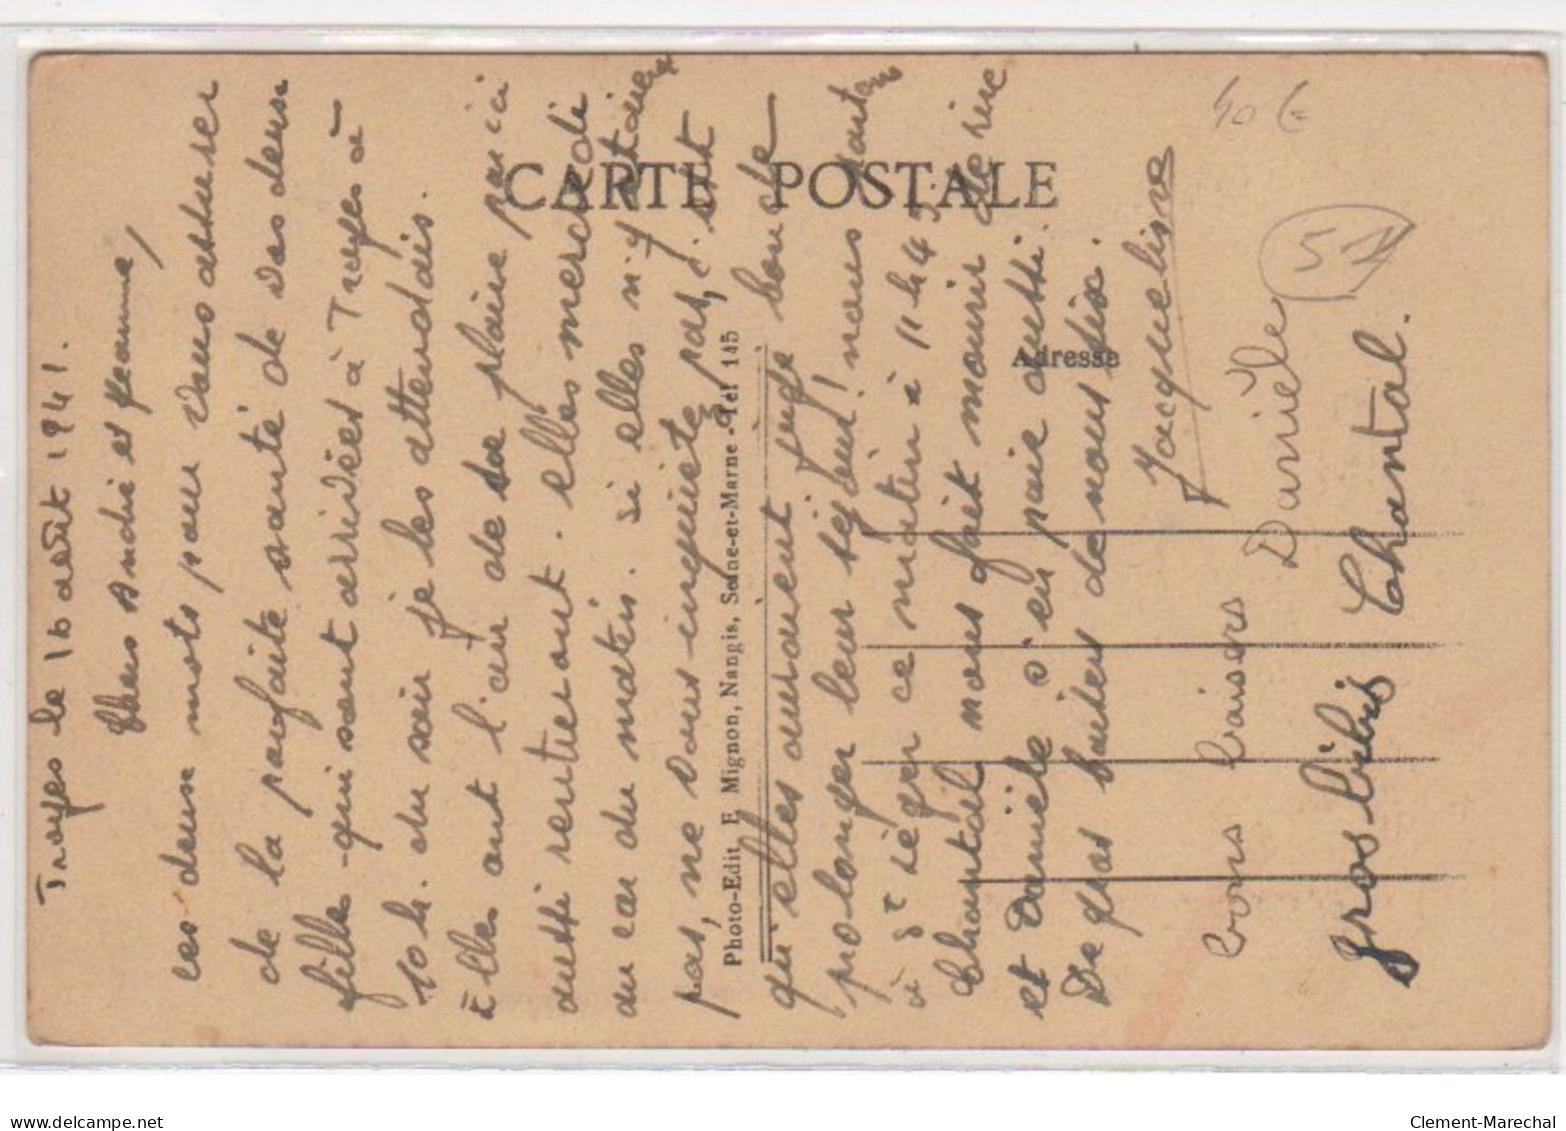 Troyes le 16 août 1941.
Chers André et Jeanne,
ces deux mots pour vous assurer
de la parfaite santé de vos deux
filles qui sont arrivées à Troyes à
10h. du soir je les attendais.
Elles ont l'air de se plaire par ici
aussi rentreront elles mercredi
au car du matin. si elles n'y étaient
pas, ne vous inquiétez pas, c. sont
qu'elles auraient jugé bon de
prolonger leur séjour! nous partons
à St Léger ce matin à 11h45.
Chantal nous fait mourir de rire
et Danièle s'en paie aussi.
De gros baisers de nous six.
Jacqueline
bons baisers Danièle
gros bibis Chantal.
CARTE POSTALE
Adresse
Photo-Edit. E. Mignon, Nangis, Seine-et-Marne - Tel 145
40 €
51
delcampe.net
Clement-Marechal